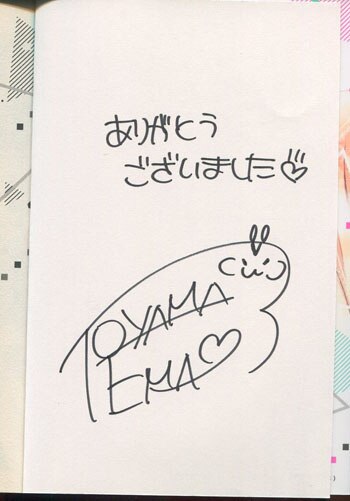 ありがとう
ございました♡
TOYAMA
EMA♡